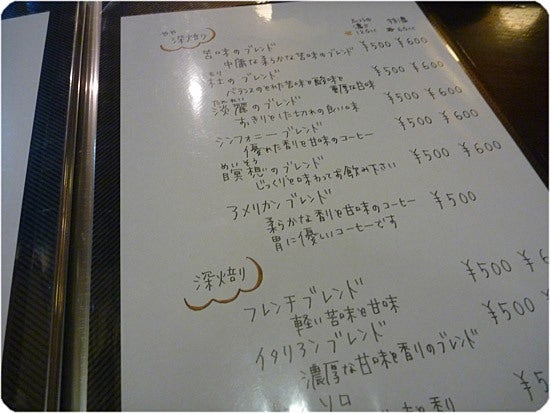 やや
深焙り
苦味のブレンド ¥500 ¥600
中庸な柔らかな苦味のブレンド
杜のブレンド ¥500 ¥600
バランスのとれた苦味と酸味と重厚な甘味
たんれい
淡麗のブレンド ¥500 ¥600
すっきりとした切れの良い味
シンフォニーブレンド ¥500 ¥600
優れた香りと甘味のコーヒー
めいそう
瞑想のブレンド ¥500 ¥600
じっくりと味わってお飲み下さい
アメリカンブレンド ¥500
柔らかな香りと甘味のコーヒー
胃に優しいコーヒーです
深焙り
フレンチブレンド ¥500
軽い苦味と甘味
イタリアンブレンド ¥500
濃厚な甘味と香りのブレンド
ソロ